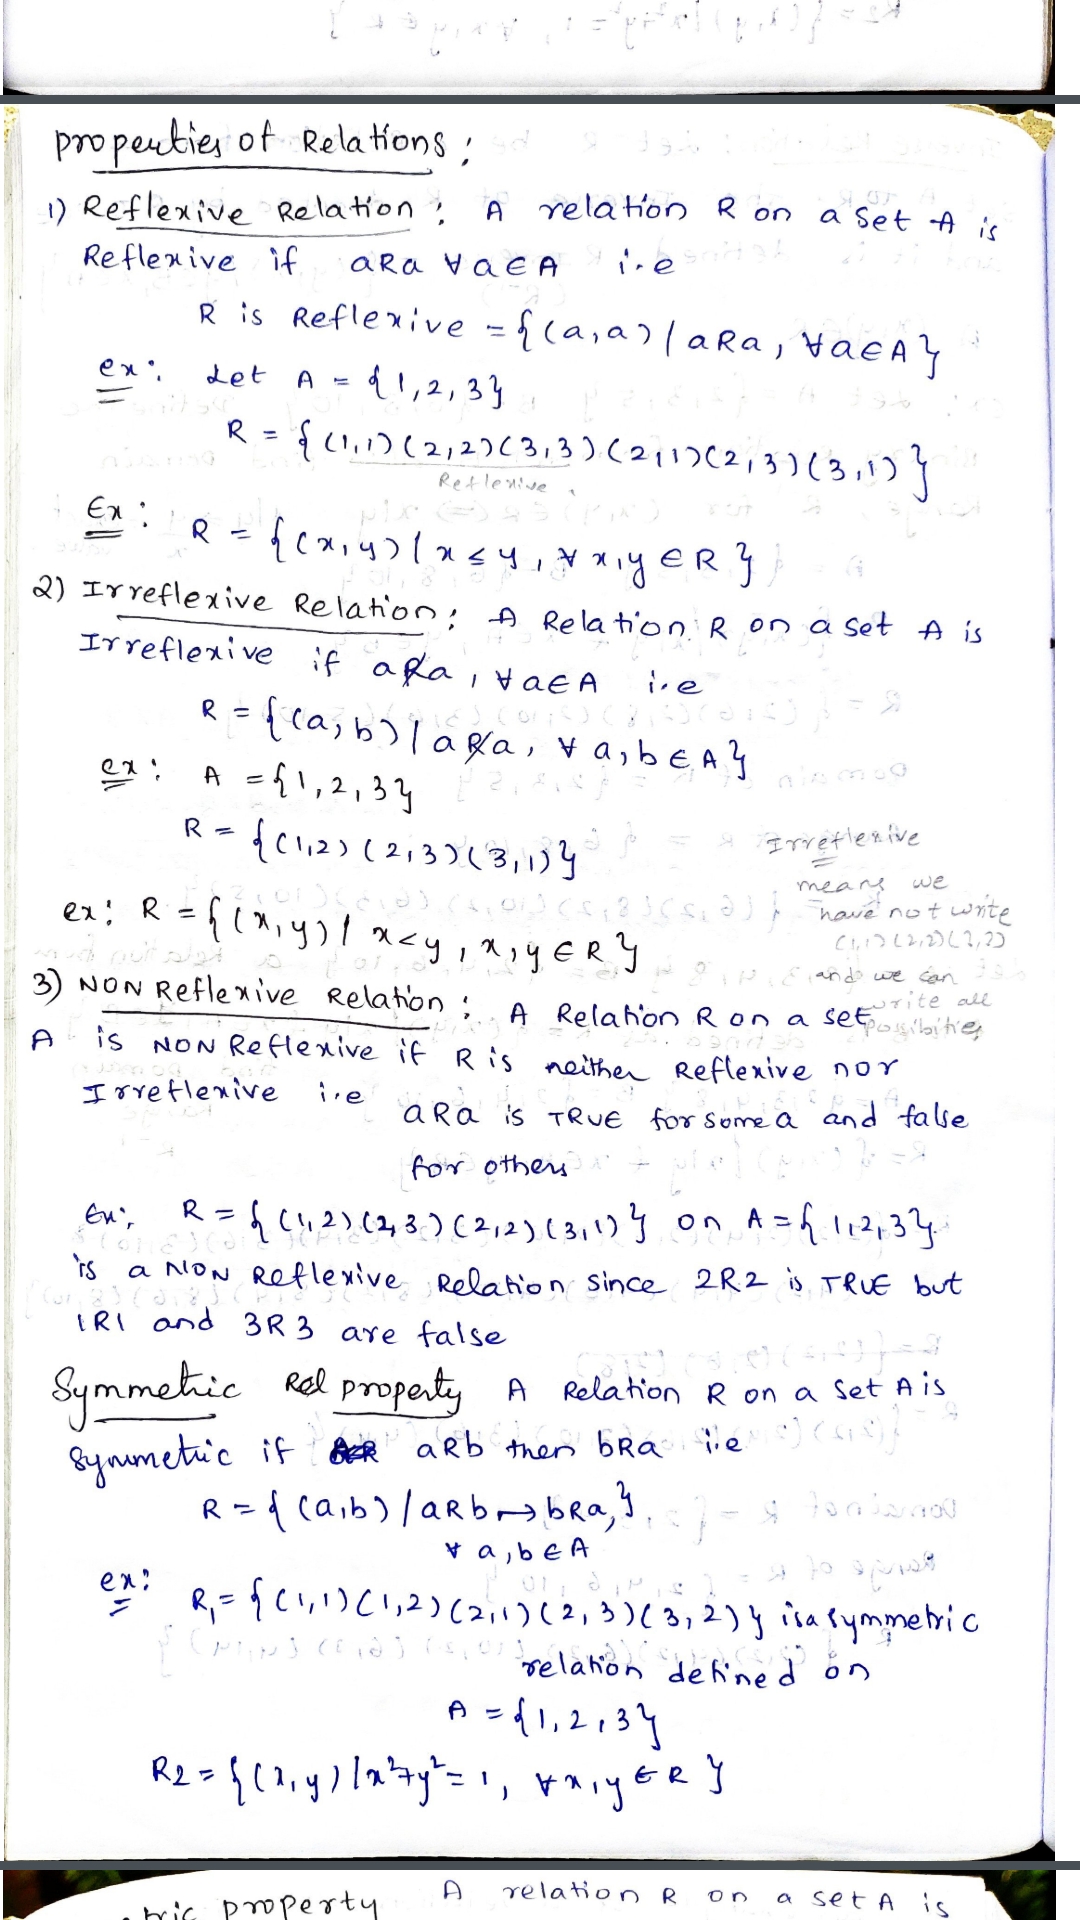 properties of Relations :
1) Reflexive Relation : A relation R on a set A is
Reflexive if aRa ∀a∈A i.e
R is Reflexive = {(a,a) / aRa, ∀a∈A}
ex: Let A = {1,2,3}
R = {(1,1)(2,2)(3,3)(2,1)(2,3)(3,1)}
Reflexive
Ex: R = {(x,y) / x ≤ y, ∀ x,y ∈ R}
2) Irreflexive Relation : A Relation R on a set A is
Irreflexive if aR̸a, ∀a∈A i.e
R = {(a,b) / aR̸a, ∀ a,b ∈ A}
ex: A = {1,2,3}
R = {(1,2)(2,3)(3,1)}
Irreflexive
means we
have not write
(1,1)(2,2)(3,3)
and we can
write all
possibities
ex: R = {(x,y) / x<y, x,y ∈ R}
3) NON Reflexive Relation : A Relation R on a set
A is NON Reflexive if R is neither Reflexive nor
Irreflexive i.e
aRa is TRUE for some a and false
for others
Ex: R = {(1,2)(2,3)(2,2)(3,1)} on A = {1,2,3}
is a NON Reflexive Relation since 2R2 is TRUE but
1R1 and 3R3 are false
Symmetric Rel property A Relation R on a set A is
symmetric if aRb then bRa i.e
R = {(a,b) / aRb → bRa,}
∀ a,b ∈ A
ex: R₁ = {(1,1)(1,2)(2,1)(2,3)(3,2)} is a symmetric
relation defined on
A = {1,2,3}
R2 = {(x,y) / x²+y² = 1, ∀ x,y ∈ R}
tric property A relation R on a set A is